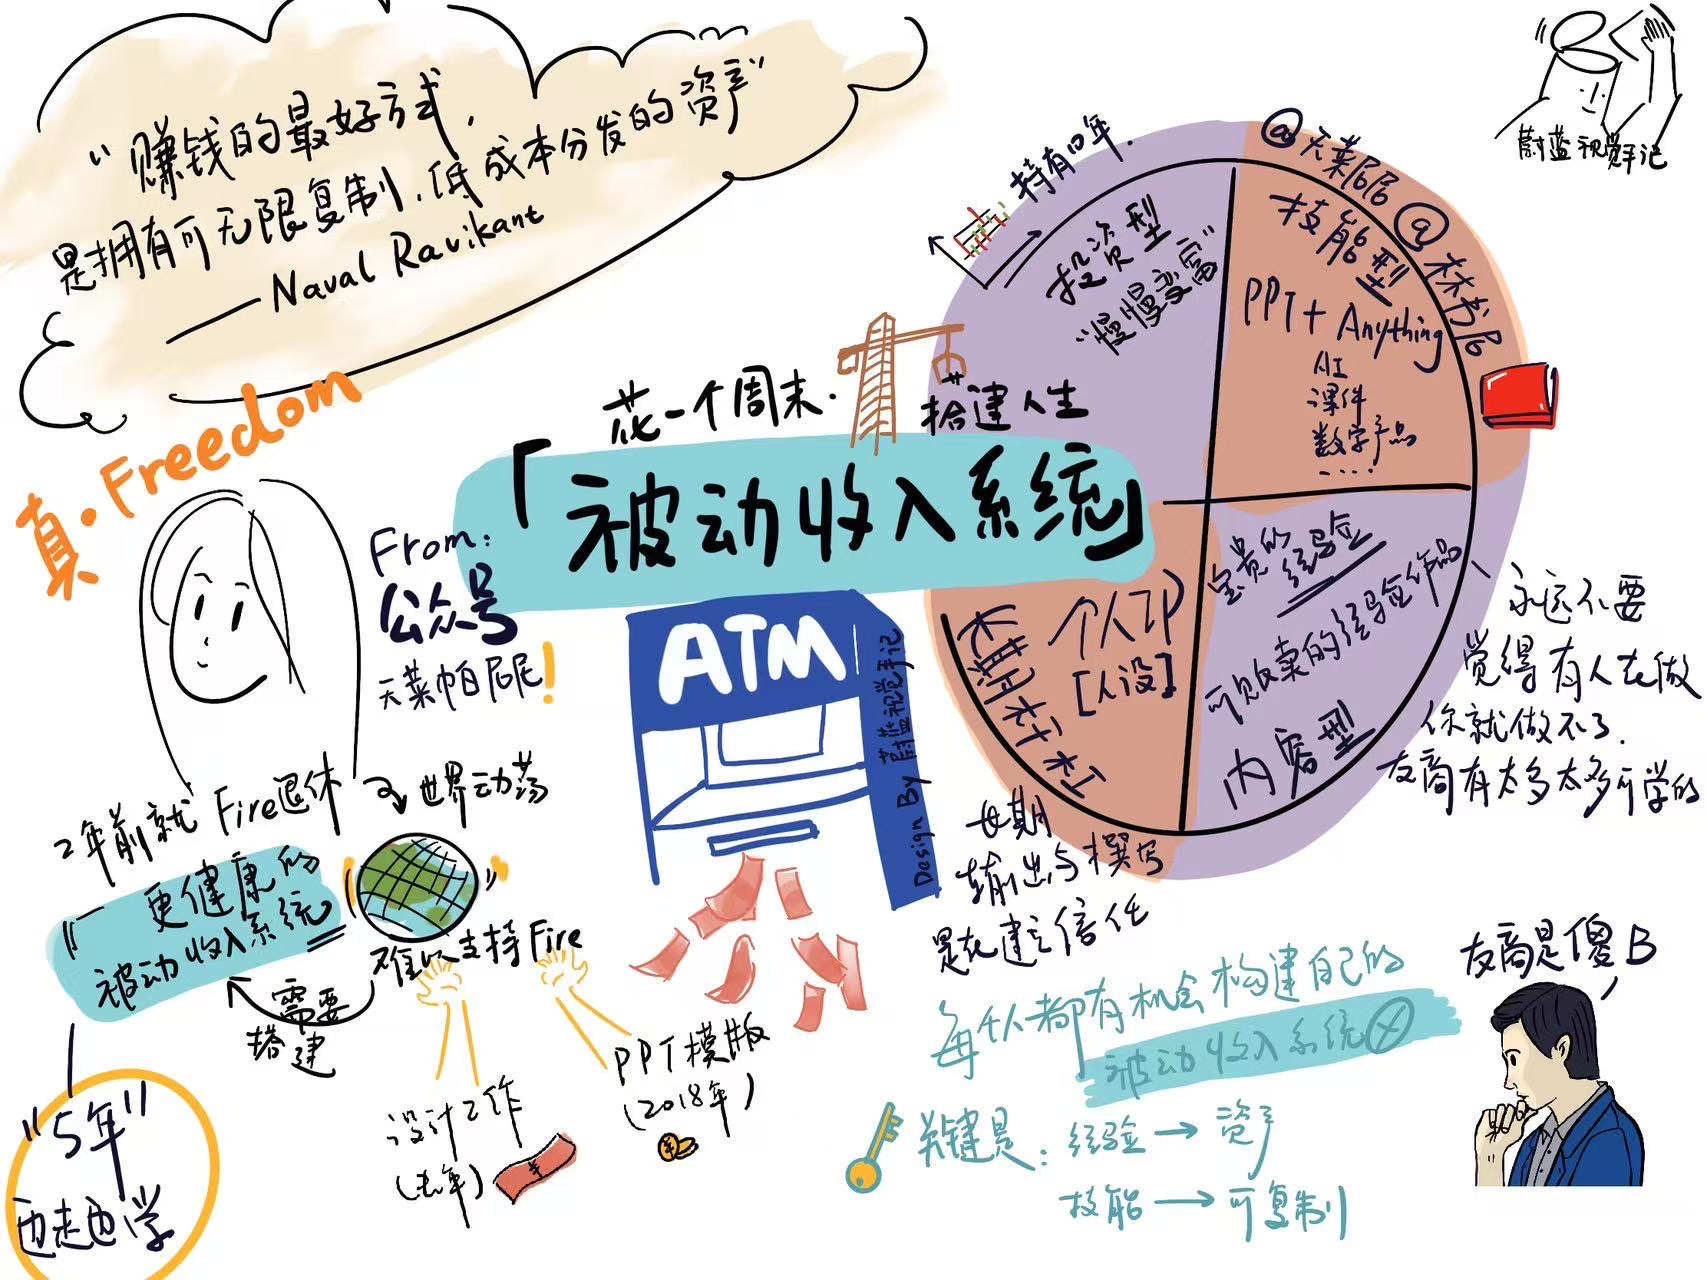 "赚钱的最好方式,
是拥有可无限复制,低成本分发的资产"
——Naval Ravikant
蔚蓝视觉手记
真·Freedom
花一个周末·
搭建人生
「被动收入系统」
From:
公众号
天菜帕尼尼!
ATM
Design By 蔚蓝视觉手记
持有四年.
投资型
"慢慢变富"
@天菜尼尼 @木木书尼
技能型
PPT+ Anything
AI
课件
数字产品
....
宝贵的
经验
可贩卖的经验作品、
内容型
个人IP
[人设]
长期主义
永远不要
觉得有人在做
你就做不了.
友商有太多太多可学的
长期
输出与撰写
是在建立信任
2年前就Fire退休
世界动荡
难以支持Fire
需要
搭建
「更健康的
被动收入系统」
"5年"
边走边学
设计工作
(去年)
PPT模版
(2018年)
每个人都有机会构建自己的
被动收入系统
关键是: 经验→资产
技能→可复制
友商是傻B